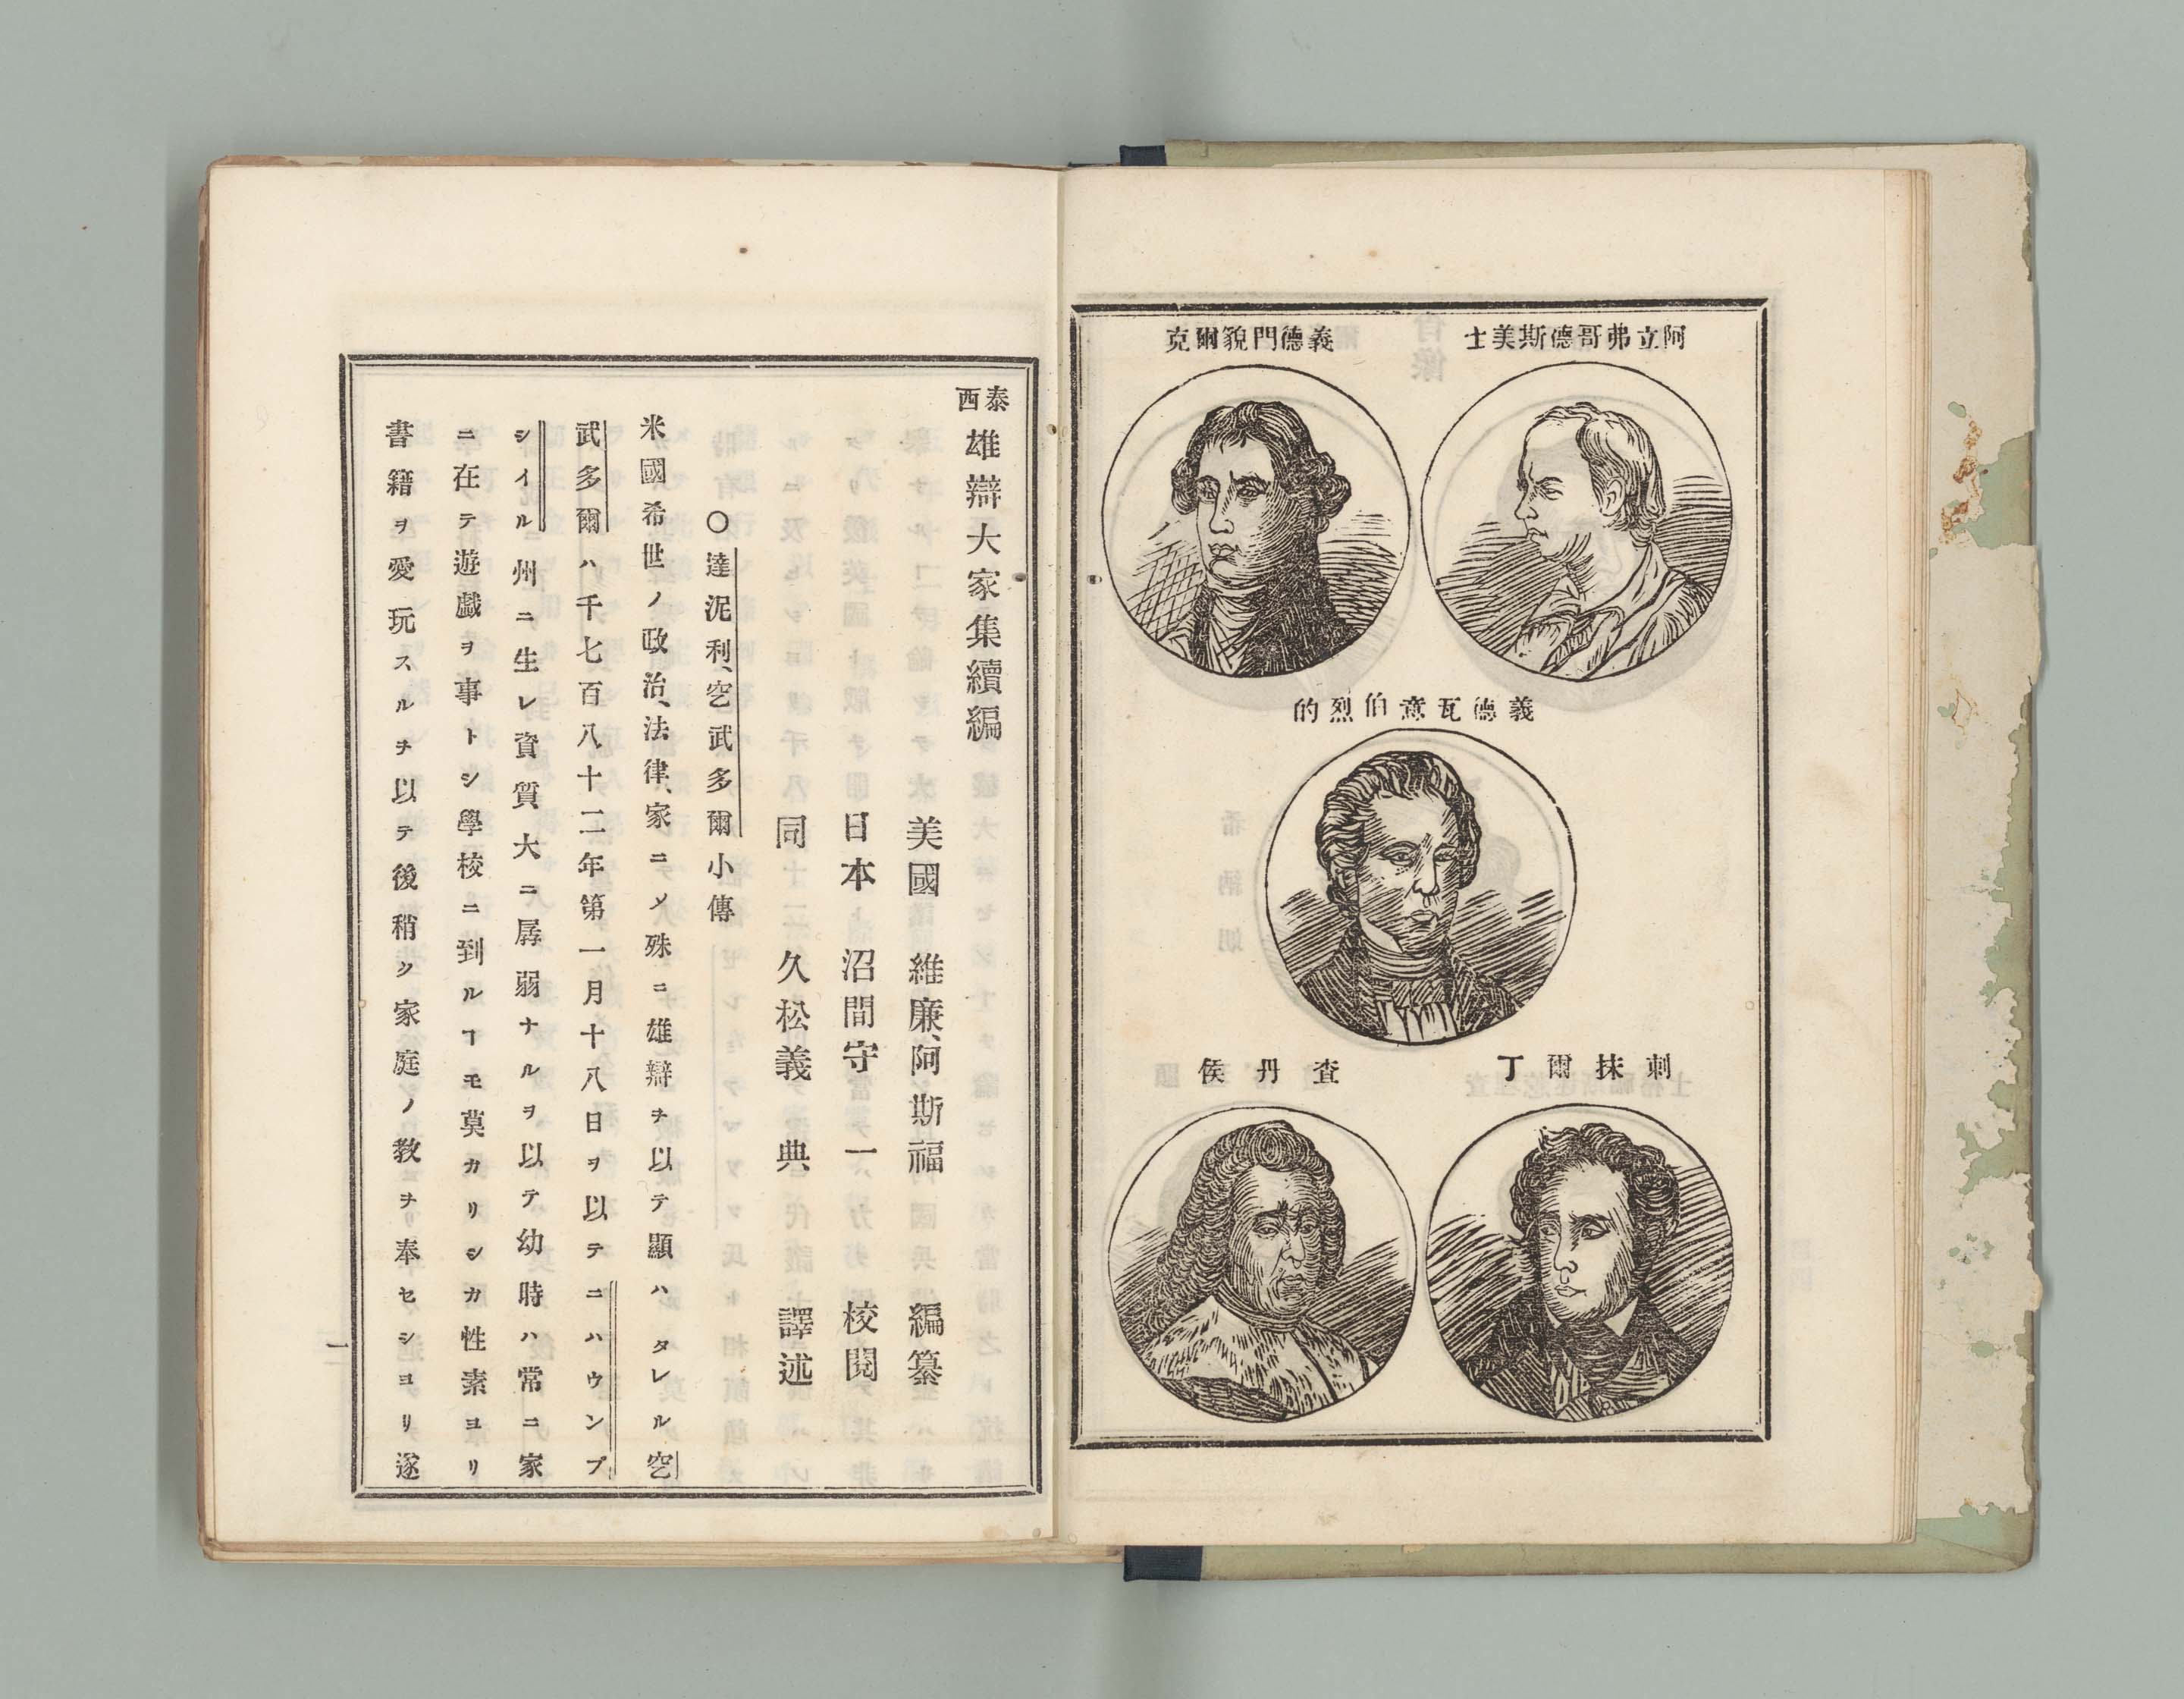 阿立弗哥德斯美士
義德門貌爾克
義德瓦意伯烈的
刺抹爾丁
査丹侯
泰西 雄辯大家集續編
美國 維廉、阿斯福 編纂
日本 沼間守一 校閱
同 久松義典 譯述
〇達泥利、空武多爾小傳
米國希世ノ政治、法律、家ニ〆殊ニ雄辯ヲ以テ顯ハタレル空
武多爾ハ千七百八十二年第一月十八日ヲ以テニハウンプ
シイル州ニ生レ資質大ニ孱弱ナルヲ以テ幼時ハ常ニ家
ニ在テ遊戯ヲ事トシ學校ニ到ルヿモ莫カリシカ性素ヨリ
書籍ヲ愛玩スルヲ以テ後稍ク家庭ノ教ヲ奉セシヨリ遂
一